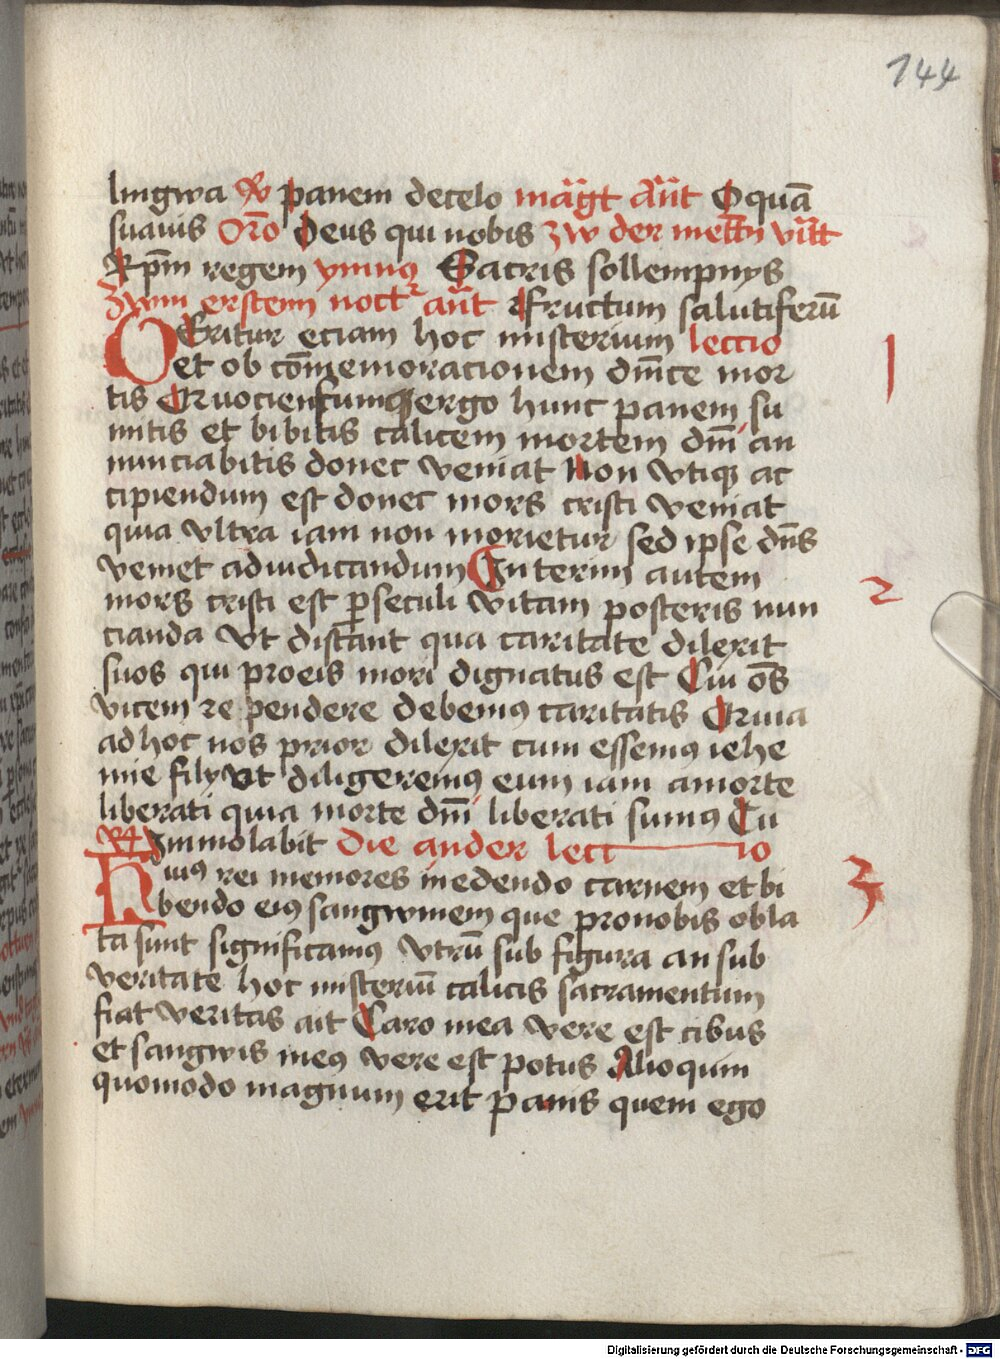 144
lingwa R panem decelo mägt Añt O quā
suauis Orō Deus qui nobis zw der mettn vitt
Xpm regem ymnus Sacris sollempnys
zwm ersten noct añt Fructum salutiferū
OEritur eciam hoc misterium lectio
et ob cōmemoracionem dnice mor
tis Quociens cumque ergo hunc panem su
mitis et bibitis calicem mortem dnī an
nunciabitis donec veniat Non vtique ac
cipiendum est donec mors cristi veniat
quia vltra iam non morietur sed ipse dn̄s
veniet adiudicandum Interim autem
mors cristi est p seculi vitam posteris nun
cianda Vt discant qua caritate dilexit
suos qui proeis mori dignatus est Cui om̄s
vicem re pendere debemus caritatis Quia
ad hoc nos prior dilexit cum essemus iehe
nne filÿ vt diligeremus eum iam amorte
liberati quia morte dnī liberati sumus Cu
R Immolabit Die ander lectio
Huius rei memores inedendo carnem et bi
bendo eius sangwinem que pronobis obla
ta sunt significamus vtrū sub figura an sub
veritate hoc misteriū calicis sacramentum
fiat veritas ait Caro mea vere est cibus
et sangwis meus vere est potus Alioquin
quomodo magnum erit panis quem ego
1
2
3
Digitalisierung gefördert durch die Deutsche Forschungsgemeinschaft - DFG